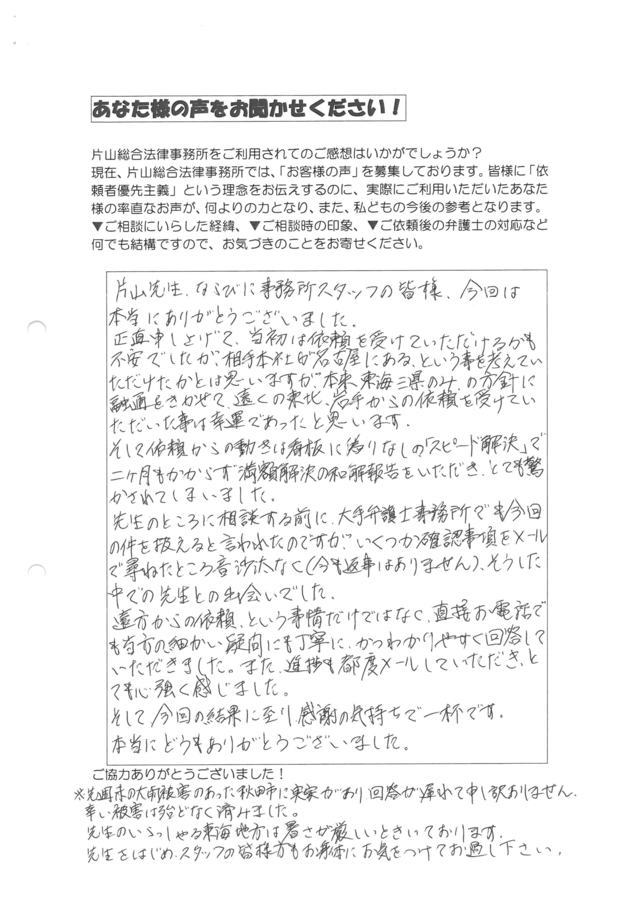 あなた様の声をお聞かせください！
片山総合法律事務所をご利用されてのご感想はいかがでしょうか？
現在、片山総合法律事務所では、「お客様の声」を募集しております。皆様に「依
頼者優先主義」という理念をお伝えするのに、実際にご利用いただいたあなた
様の率直なお声が、何よりの力となり、また、私どもの今後の参考となります。
▼ご相談にいらした経緯、▼ご相談時の印象、▼ご依頼後の弁護士の対応など
何でも結構ですので、お気づきのことをお寄せください。
片山先生、ならびに事務所スタッフの皆様、今回は
本当にありがとうございました。
正直申し上げて、当初は依頼を受けていただけるかも
不安でしたが、相手本社が名古屋にある、という事を考えてい
ただけたかとは思いますが、本来、東海三県のみ、の方針に
融通をきかせて、遠くの東北、岩手からの依頼を受けてい
ただいた事は幸運であったと思います。
そして依頼からの動きは看板に偽りなしの「スピード解決」で
二ヶ月もかからず満額解決の和解報告をいただき、とても驚
かされてしまいました。
先生のところに相談する前に、大手弁護士事務所でも今回
の件を扱えると言われたのですが、いくつか確認事項をメール
で尋ねたところ音沙汰なく(今も返事はありません)、そうした
中での先生との出会いでした。
遠方からの依頼、という事情だけではなく、直接お電話で
も当方の細かい疑問にも丁寧に、かつわかりやすく回答して
いただきました。また、進捗も都度メールしていただき、と
ても心強く感じました。
そして今回の結果に至り感謝の気持ちで一杯です。
本当にどうもありがとうございました。
ご協力ありがとうございました！
※先週末の大雨被害のあった秋田市に実家があり回答が遅れて申し訳ありません。
幸い被害は殆どなく済みました。
先生のいらっしゃる東海地方は暑さが厳しいときいております。
先生をはじめ、スタッフの皆様方もお身体にお気をつけてお過し下さい。